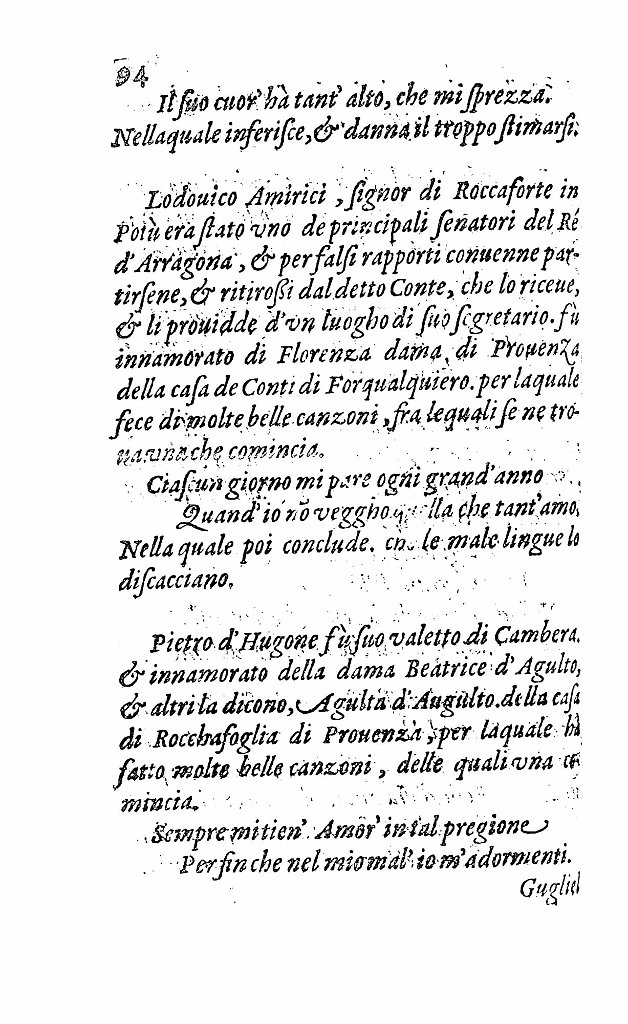 94
Il suo cuor' hà tant' alto, che mi sprezza.
Nellaquale inferisce, & danna il troppo stimarsi.
Lodouico Amirici, signor di Roccaforte in
Potù era stato vno de principali senatori del Ré
d'Arragona, & per falsi rapporti conuenne par-
tirsene, & ritirossi dal detto Conte, che lo riceue,
& li prouidde d'vn luogho di suo segretario. fù
innamorato di Florenza dama di Prouenza
della casa de Conti di Forqualquiero. per laquale
fece di molte belle canzoni, fra lequali se ne tro-
ua vna che comincia.
Ciascun giorno mi pare ogni grand'anno
Quand' io nõ veggho quella che tant'amo,
Nella quale poi conclude. che le male lingue lo
discacciano.
Pietro d'Hugone fù suo valetto di Cambera.
& innamorato della dama Beatrice d'Agulto,
& altri la dicono, Agulta d'Augulto. della casa
di Rocchafoglia di Prouenza, per laquale hà
fatto molte belle canzoni, delle quali vna co
mincia.
Sempre mi tien' Amor' in tal pregione
Per fin che nel mio mal' io m'adormenti.
Gugliel